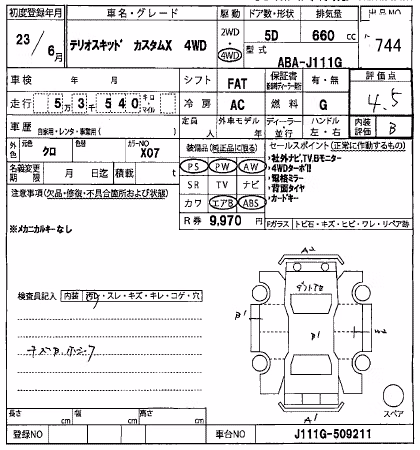 初度登録年月
車名・グレード
駆動
ドア数・形状
排気量
出品NO
23/6月
テリオスキッド カスタムX 4WD
2WD・4WD
5D
660 cc
744
型式
ABA-J111G
車検 年 月
シフト
FAT
保証書
有・無
評価点
4.5
走行
5万3千540
キロ・マイル
冷房
AC
燃料
G
車歴
自家用・レンタ・事業用( )
定員 人
外車モデル 年
ディーラー・並行
ハンドル 左・右
内装評価
B
外色
元色
クロ
色替
カラーNO
X07
装備品(純正品に限る)
セールスポイント(正常に作動するもの)
名義変更期限 月 日迄
積載 t
PS PW AW
SR TV ナビ
カワ エアB ABS
›社外ナビ、TV、Bモニター
›4WDターボ!!
›電格ミラー
›背面タイヤ
›カードキー
注意事項(欠品・修復・不具合箇所および状態)
※メカニカルキーなし
R券 9,970 円
Fガラス トビ石・キズ・ヒビ・ワレ・リペア跡
検査員記入
内装 汚れ・スレ・キズ・キレ・コゲ・穴
A2
B1
B1
A1
スペア
長さ cm
幅 cm
高さ cm
登録NO
車台NO
J111G-509211